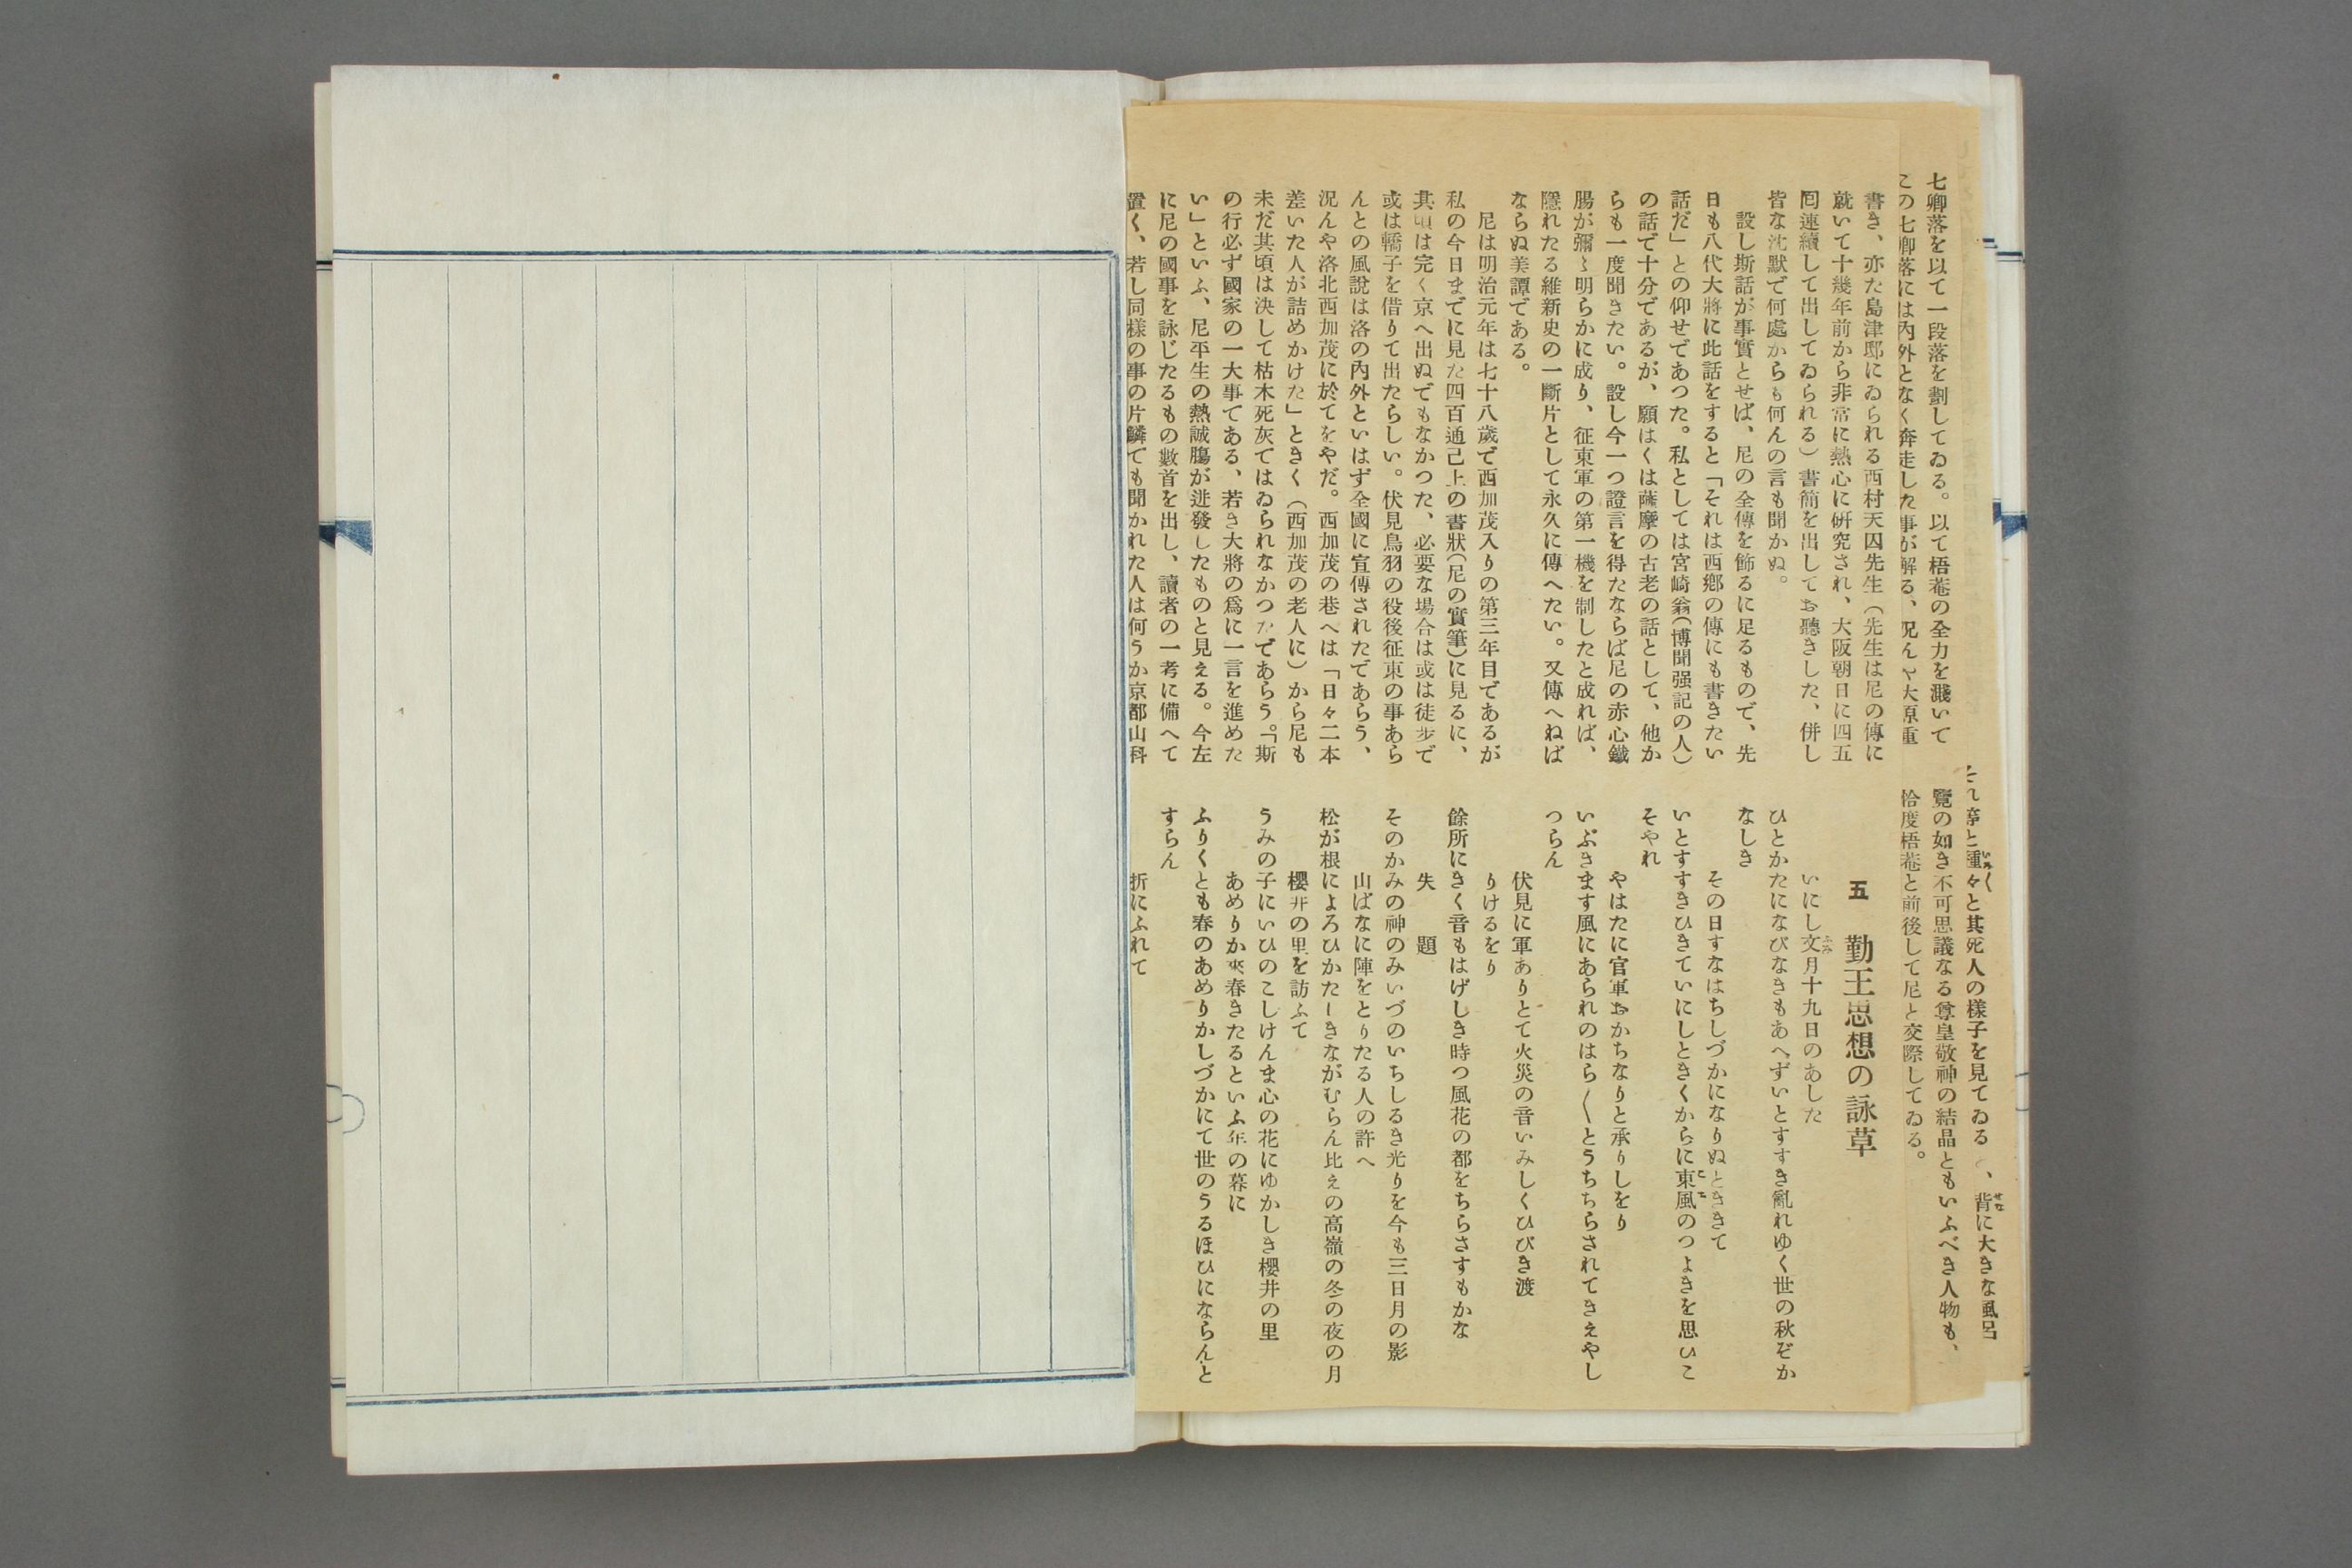 七卿落を以て一段落を劃してゐる。以て梧菴の全力を濺いて
この七卿落には内外となく奔走した事が解る、况んや大原重
書き、亦た島津邸にゐられる西村天囚先生（先生は尼の傳に
就いて十幾年前から非常に熱心に硏究され、大阪朝日に四五
囘連續して出してゐられる）書簡を出してお聽きした、併し
皆な沈默で何處からも何んの言も聞かぬ。
設し斯話が事實とせば、尼の全傳を飾るに足るもので、先
日も八代大將に此話をすると「それは西鄕の傳にも書きたい
話だ」との仰せであつた。私としては宮崎翁（博聞强記の人）
の話で十分であるが、願はくは薩摩の古老の話として、他か
らも一度聞きたい。設し今一つ證言を得たならば尼の赤心鐵
腸が彌〻明らかに成り、征東軍の第一機を制したと成れば、
隱れたる維新史の一斷片として永久に傳へたい。又傳へねば
ならぬ美譚である。
尼は明治元年は七十八歲で西加茂入りの第三年目であるが
私の今日までに見た四百通己上の書狀（尼の實筆）に見るに、
其頃は完く京へ出ぬでもなかつた、必要な場合は或は徒步で
或は轎子を借りて出たらしい。伏見鳥羽の役後征東の事あら
んとの風說は洛の內外といはず全國に宣傳されたであらう、
況んや洛北西加茂に於てをやだ。西加茂の巷へは「日々二本
差いた人が詰めかけた」ときく（西加茂の老人に）から尼も
未だ其頃は決して枯木死灰てはゐられなかつたであらう。「斯
の行必ず國家の一大事てある、若き大將の爲に一言を進めた
い」といふ、尼平生の熱誠膓が迸發したものと見える。今左
に尼の國事を詠じたるもの數首を出し、讀者の一考に備へて
置く、若し同樣の事の片鱗ても聞かれた人は何うか京都山科
それ等と種々と其死人の樣子を見てゐると、背に大きな風呂
覽の如き不可思議なる尊皇敬神の結晶ともいふべき人物も、
恰度梧菴と前後して尼と交際してゐる。
五　勤王思想の詠草
いにし文月十九日のあした
ひとかたになびなきもあへずいとすすき亂れゆく世の秋ぞか
なしき
その日すなはちしづかになりぬときさて
いとすすきひきていにしときくからに東風のつよきを思ひこ
そやれ
やはたに官軍おかちなりと承りしをり
いぶきます風にあられのはら〳〵とうちちらされてきえやし
つらん
伏見に軍ありとて火災の音いみしくひびき渡
りけるをり
餘所にきく音もはげしき時つ風花の都をちらさすもかな
失　題
そのかみの神のみいづのいちしるき光りを今も三日月の影
山ばなに陣をとりたる人の許へ
松が根によろひかたしきながむらん比えの高嶺の冬の夜の月
櫻井の里を訪ふて
うみの子にいひのこしけんま心の花にゆかしき櫻井の里
あめりか夾春きたるといふ年の暮に
ふりくとも春のあめりかしづかにて世のうるほひにならんと
すらん
折にふれて